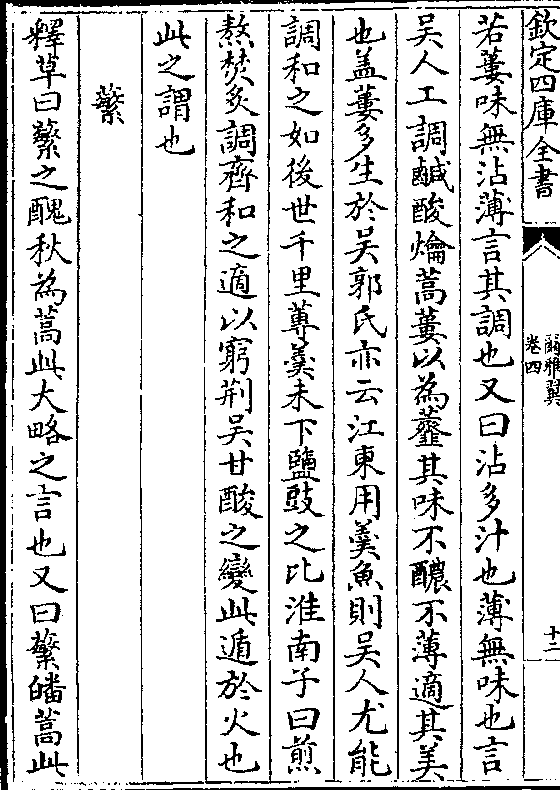 欽定四庫全書
爾雅翼
卷四
十二
若蔞味無沾薄言其調也又曰沾多汁也薄無味也言
吳人工調鹹酸爚蒿蔞以為虀其味不醲不薄適其美
也蓋蔞多生於吳郭氏亦云江東用羮魚則吳人尤能
調和之如後世千里蓴羮未下鹽豉之比淮南子曰煎
熬焚炙調齊和之適以窮荆吳甘酸之變此遁於火也
此之謂也
蘩
釋草曰蘩之醜秋為蒿此大略之言也又曰蘩皤蒿此